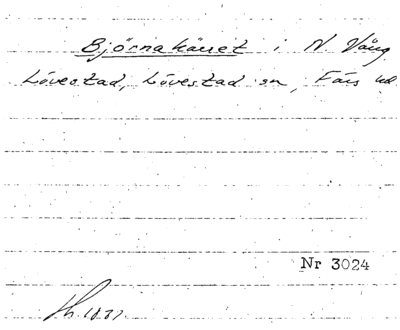 Björnakärret i N. Vång
Lövestad, Lövestad sn, Färs hd
Nr 3024